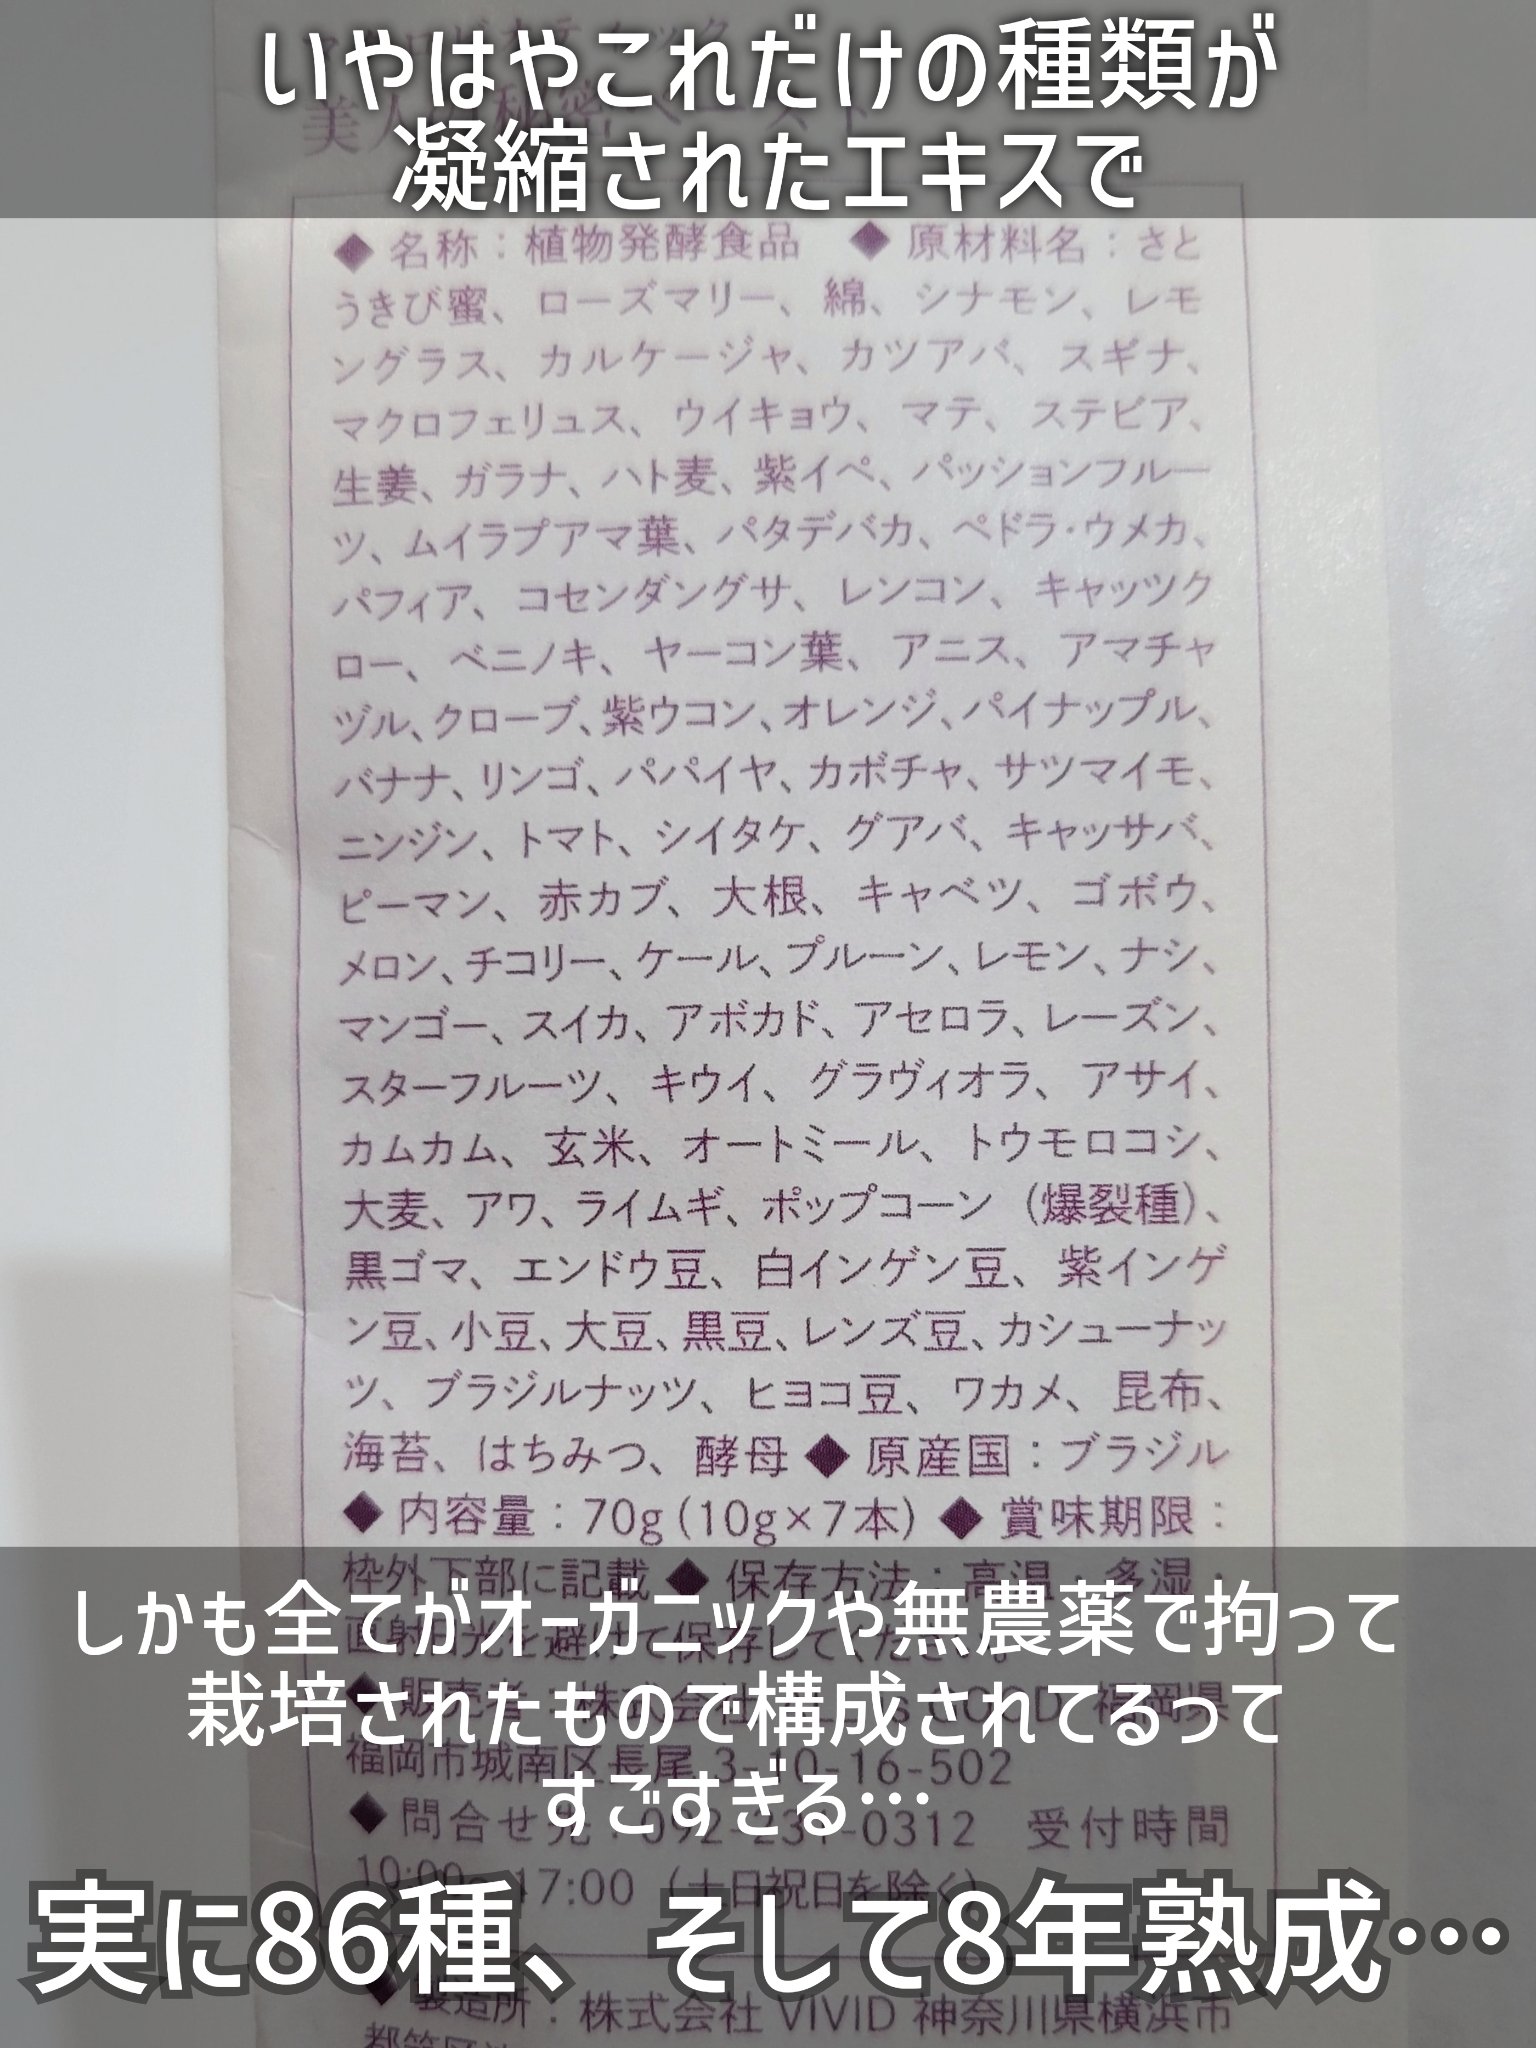 いやはやこれだけの種類が
凝縮されたエキスで
◆名称：植物発酵食品　◆原材料名：さと
うきび蜜、ローズマリー、綿、シナモン、レモ
ングラス、カルケージャ、カツアバ、スギナ、
マクロフェリュス、ウイキョウ、マテ、ステビア、
生姜、ガラナ、ハト麦、紫イペ、パッションフルー
ツ、ムイラプアマ葉、パタデバカ、ペドラ・ウメカ、
パフィア、コセンダングサ、レンコン、キャッツク
ロー、ベニノキ、ヤーコン葉、アニス、アマチャ
ヅル、クローブ、紫ウコン、オレンジ、パイナップル、
バナナ、リンゴ、パパイヤ、カボチャ、サツマイモ、
ニンジン、トマト、シイタケ、グアバ、キャッサバ、
ピーマン、赤カブ、大根、キャベツ、ゴボウ、
メロン、チコリー、ケール、プルーン、レモン、ナシ、
マンゴー、スイカ、アボカド、アセロラ、レーズン、
スターフルーツ、キウイ、グラヴィオラ、アサイ、
カムカム、玄米、オートミール、トウモロコシ、
大麦、アワ、ライムギ、ポップコーン（爆裂種）、
黒ゴマ、エンドウ豆、白インゲン豆、紫インゲ
ン豆、小豆、大豆、黒豆、レンズ豆、カシューナッ
ツ、ブラジルナッツ、ヒヨコ豆、ワカメ、昆布、
海苔、はちみつ、酵母◆原産国：ブラジル
◆内容量：70g（10g×7本）◆賞味期限：
枠外下部に記載◆保存方法：高温・多湿・
しかも全てがオーガニックや無農薬で拘って
直射日光を避けて保存してください。
栽培されたもので構成されてるって
◆販売者：株式会社 GOOD 福岡県
福岡市城南区長尾 3-10-16-502
すごすぎる…
◆問合せ先：092-231-0312　受付時間
10:00〜17:00（土日祝日を除く）
実に86種、そして8年熟成…
◆製造所：株式会社 VIVID 神奈川県横浜市